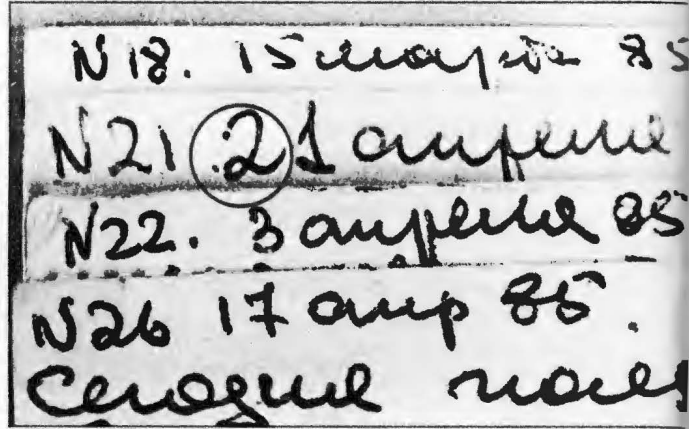 N 18. 15 марта 85
N21 .21 апреля
N22. 3 апреля 85
N26 17 апр 85.
Сегодня